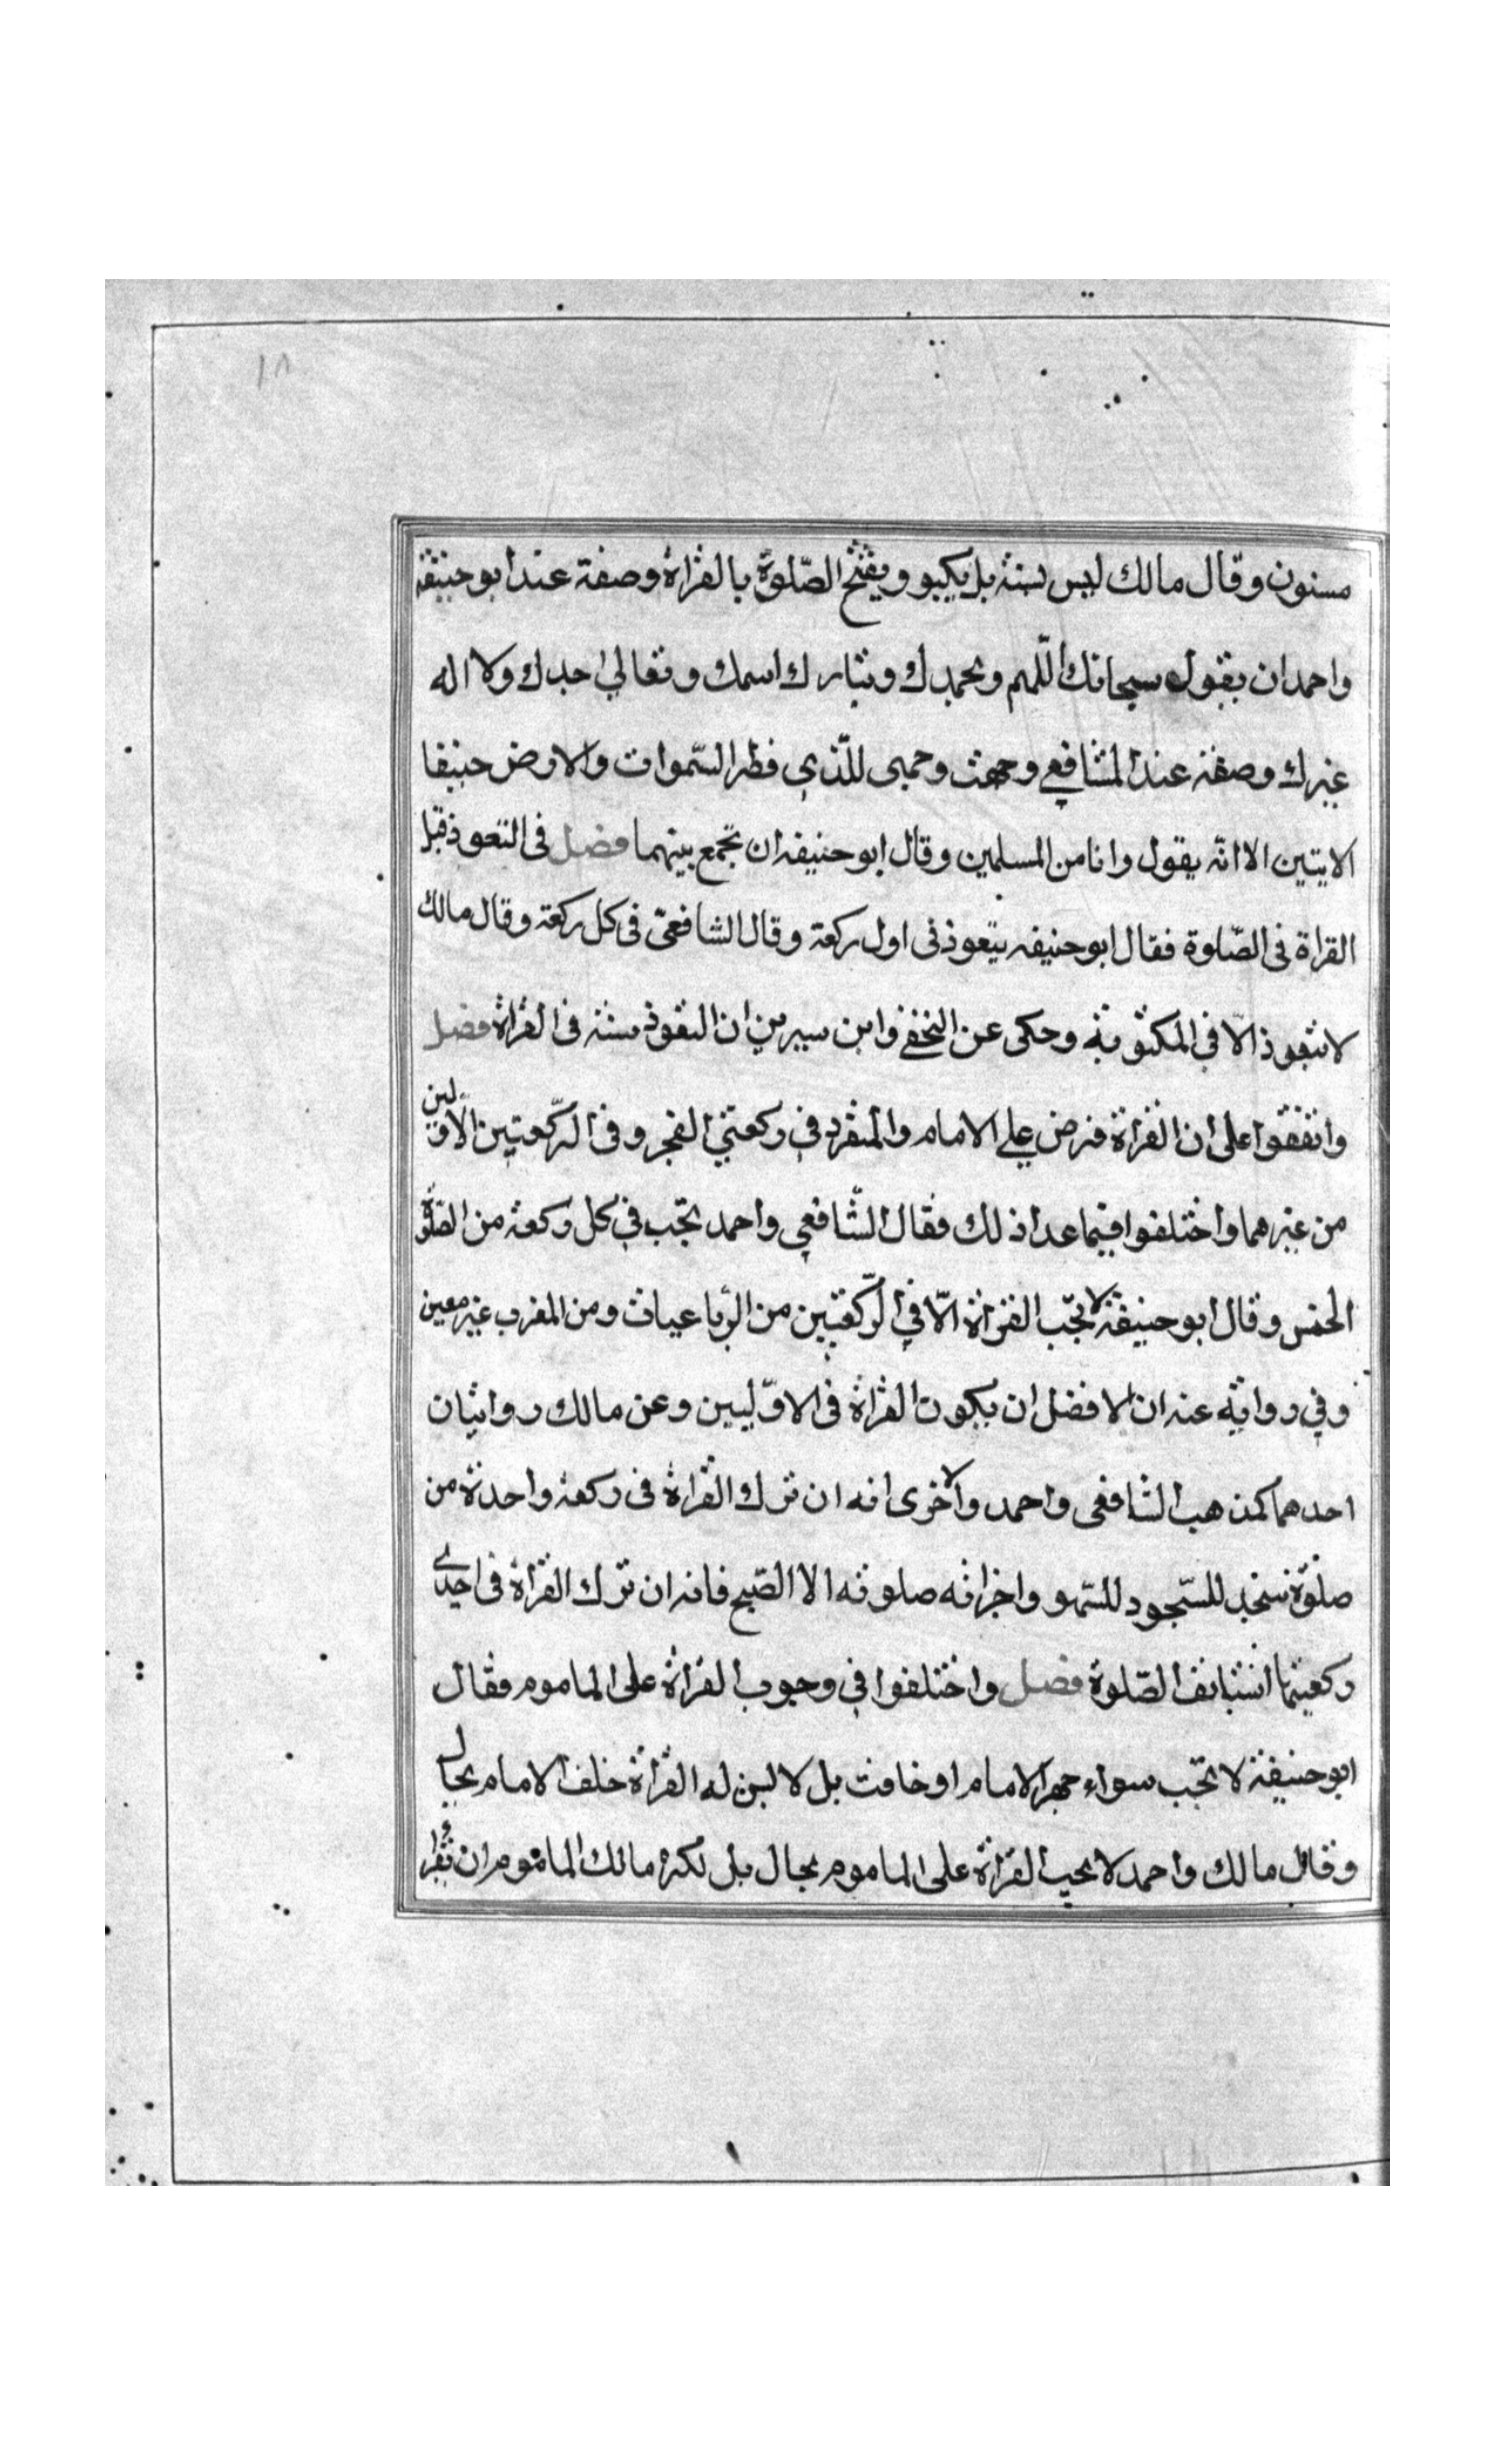 ١٨
مسنون وقال مالك ليس بسنة بل يكبر ويفتح الصّلوة بالقراة وصفة عند ابو حنيفة
واحمد ان يقول سبحانك اللّهم وبحمدك وتبارك اسمك وتعالي جدك ولا اله
غيرك وصفته عند الشافعي وجهت وجهى للّذي فطر السّموات والارض حنيفا
الايتين الا انّه يقول وانا من المسلمين وقال ابو حنيفه ان تجمع بينهما فصل فى التعوذ قبل
القراة فى الصّلوة فقال ابو حنيفه يتعوذ فى اول ركعة وقال الشافعىّ فى كل ركعة وقال مالك
لا يتعوذ الّا في المكتوبة وحكى عن النخعي وابن سيرين ان التعوذ سنة فى القراة فصل
واتفقوا على ان القراة فرض علي الامام والمنفرد في ركعتي الفجر وفى الرّكعتين الاوّلين
من غيرهما واختلفوا فيما عدا ذلك فقال الشّافعي واحمد تجّب في كل ركعة من الصّلوة
الخمس وقال ابو حنيفة لا تجّب القراة الّا في الرّكعتين من الرّباعيات ومن المغرب غير معين
وفي رواية عنه ان الافضل ان يكون القراة فى الاوّليين وعن مالك روايتان
احدهما كمذهب الشافعى واحمد والاخرى انه ان ترك القراة فى ركعة واحدة من
صلوة سجد للسّجود للسّهو واجزاته صلوته الا الصّبح فانه ان ترك القراة فى احدى
ركعيتها استانف الصّلوة فصل واختلفوا في وجوب القراة على الماموم فقال
ابو حنيفة لا تجّب سواء جهر الامام او خافت بل لا ليس له القراة خلف الامام بحال
وقال مالك واحمد لا يجب القراة على الماموم بحال بل نكره مالك الماموم ان تقرا